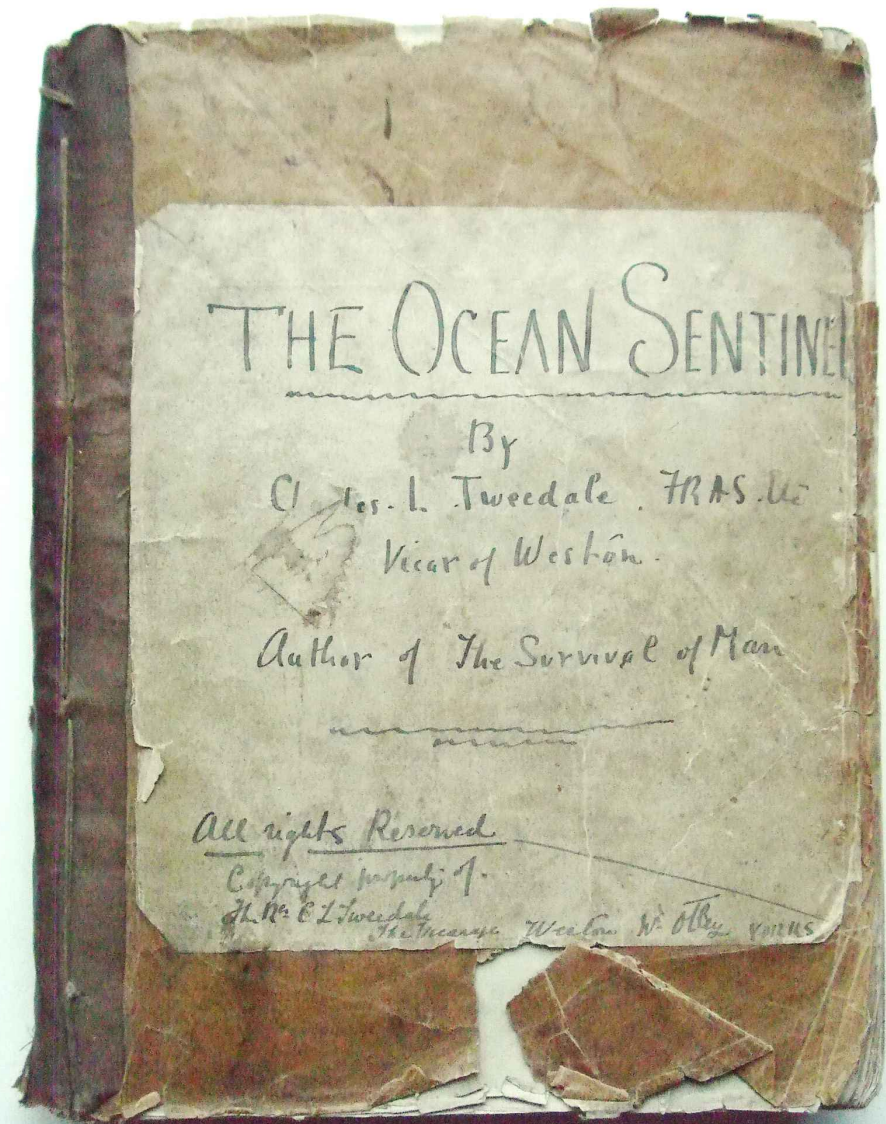 THE OCEAN SENTINEL
By
C les. L. Tweedale. FRAS.
Vicar of Weston.
Author of The Survival of Man
All rights Reserved
Copyright property of.
The Rev C L Tweedale
The Vicarage Weston Nr Otley YORKS